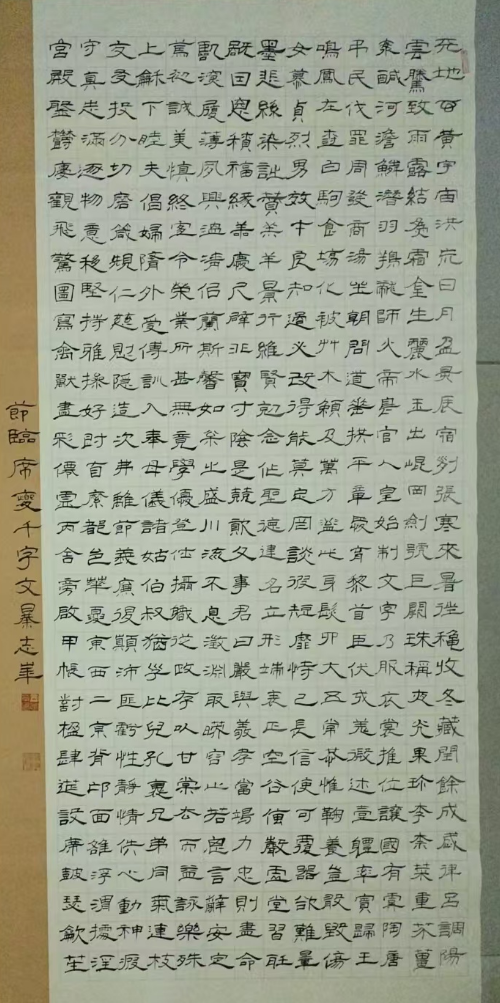 天地玄黃宇宙洪荒日月盈昃辰宿列張寒來暑往穐收冬藏閏餘成歲律呂調陽
雲騰致雨露結為霜金生麗水玉出崐岡劍號巨闕珠稱夜光果珍李柰菜重芥薑
海鹹河澹鱗潛羽翔龍師火帝鳥官人皇始制文字乃服衣裳推位讓國有虞陶唐
弔民伐罪周發商湯坐朝問道垂拱平章愛育黎首臣伏戎羌遐邇壹體率賓歸王
鳴鳳在樹白駒食場化被艸木賴及萬方蓋此身髮四大五常恭惟鞠養豈敢毀傷
女慕貞烈男效才良知過必改得能莫忘罔談彼短靡恃己長信使可覆器欲難量
墨悲絲染詩贊羔羊景行維賢克念作聖德建名立形端表正空谷傳聲虛堂習聽
禍因惡積福緣善慶尺璧非寶寸陰是競資父事君曰嚴與敬孝當竭力忠則盡命
臨深履薄夙興溫凊似蘭斯馨如松之盛川流不息淵澄取映容止若思言辭安定
篤初誠美慎終宜令榮業所甚無竟學優登仕攝職從政存以甘棠去而益詠樂殊
上龢下睦夫倡婦隋外受傅訓入奉母儀諸姑伯叔猶子比兒孔懷兄弟同氣連枝
交友投分切磨箴規仁慈隱造次弗離節義廉退顛沛匪虧性靜情逸心動神疲
守真志滿逐物意移堅持雅操好爵自縻都邑華夏東西二京背邙面雒浮渭據涇
宮殿盤鬱樓觀飛驚圖寫禽獸畫彩僊靈丙舍旁啟甲帳對楹肆筵設席鼓瑟龡笙
節臨席夔千字文暴志峯